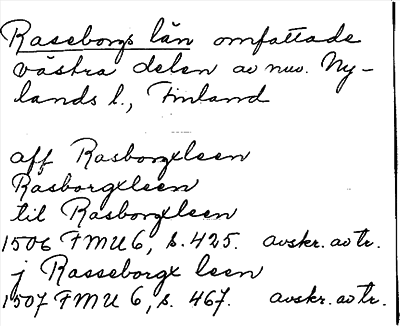 Raseborgs län omfattade
västra delen av nuv. Ny-
lands l., Finland
aff Rasborgxleen
Rasborgxleen
til Rasborgxleen
1506 FMU 6, s. 425. avskr. av tr.
j Rasseborgx leen
1507 FMU 6, s. 467. avskr. av tr.